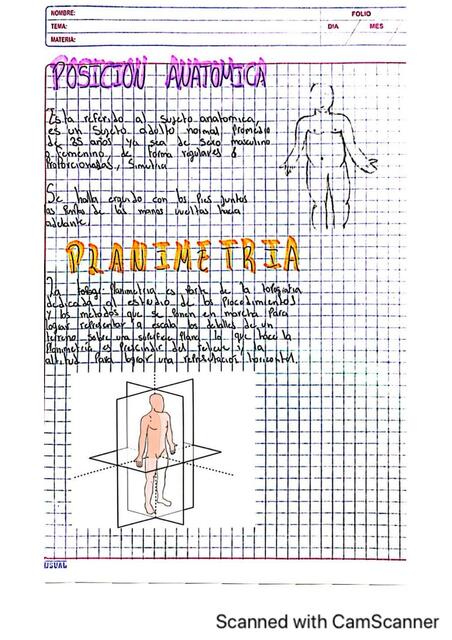 NOMBRE:
TEMA:
MATERIA:
FOLIO
DIA MES
POSICION ANATOMICA
Esta referido al sujeto anatomica,
es un sujeto adulto normal promedio
de 25 años ya sea de sexo masculino
o femenino de forma regulares o
proporcionadas, simetria
Se halla erguido con los pies juntos
las palmas de las manos vueltas hacia
adelante.
PLANIMETRIA
La planimetria es parte de la topografia
dedicada al estudio de los procedimientos
y los métodos que se ponen en marcha para
lograr representar a escala los detalles de un
terreno sobre una superficie plana lo que hace la
planimetria es prescindir del relieve y la
altitud para lograr una representación horizontal.
USUAL
Scanned with CamScanner